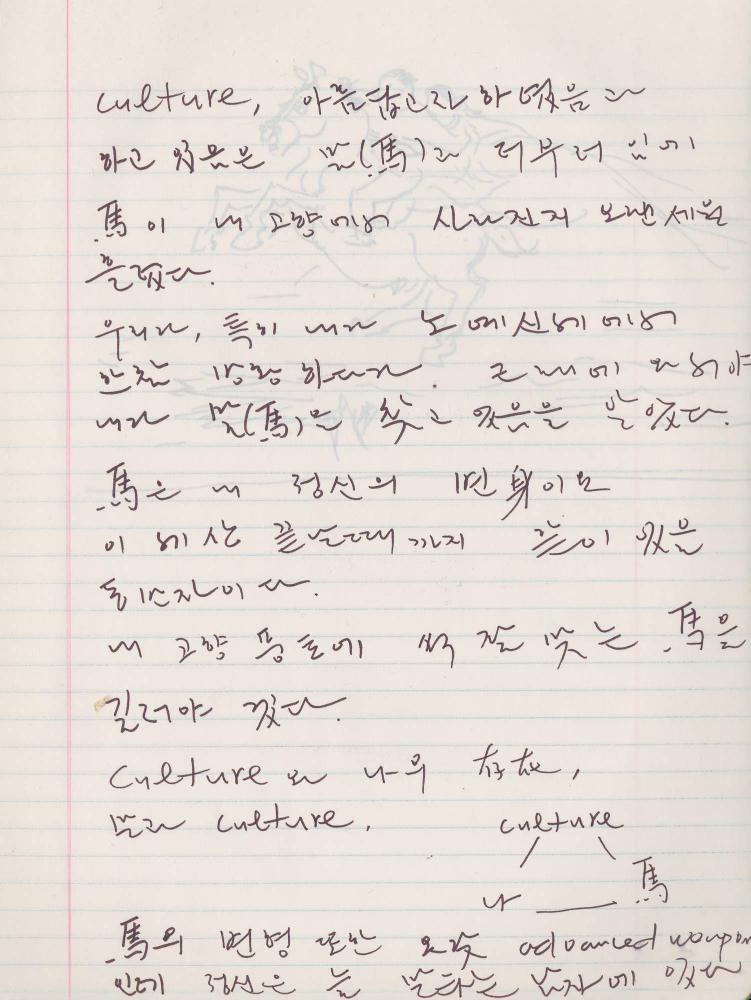 culture, 아름답고자 하였음과
하고 있음은 말(馬)과 더부러 임에
馬이 내 고향에서 사라진지 오랜 세월
흘렀다.
우리가, 특히 내가 노예신세에서
한참 방황 하다가. 근래에 와서야
내가 말(馬)을 찾고 있음을 알았다.
馬은 내 정신의 변身이요
이 세상 끝날때까지 같이 있을
동반자이다.
내 고향 풍토에 썩 잘 맞는 馬을
길러야 겠다.
Culture와 나의 存在,
말과 culture.
culture
나 馬
馬의 변형 또한 요즞 advanced weapon
인데 정신은 늘 말타는 남자에 있다